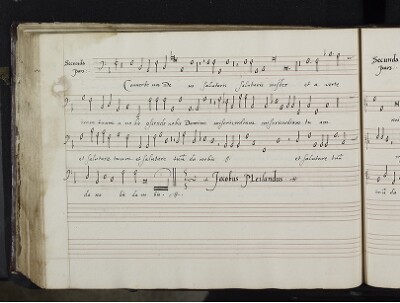 Secunda
pars:
Converte nos De us salutaris salutaris noster et a verte
iram tuam a no bis ostende nobis Domine misericordiam misericordiam tu am
et salutare tuum et salutare tuū da nobis et salutare tuū
da no bis da no bis
Jacobus Meilandus
Secunda
pars